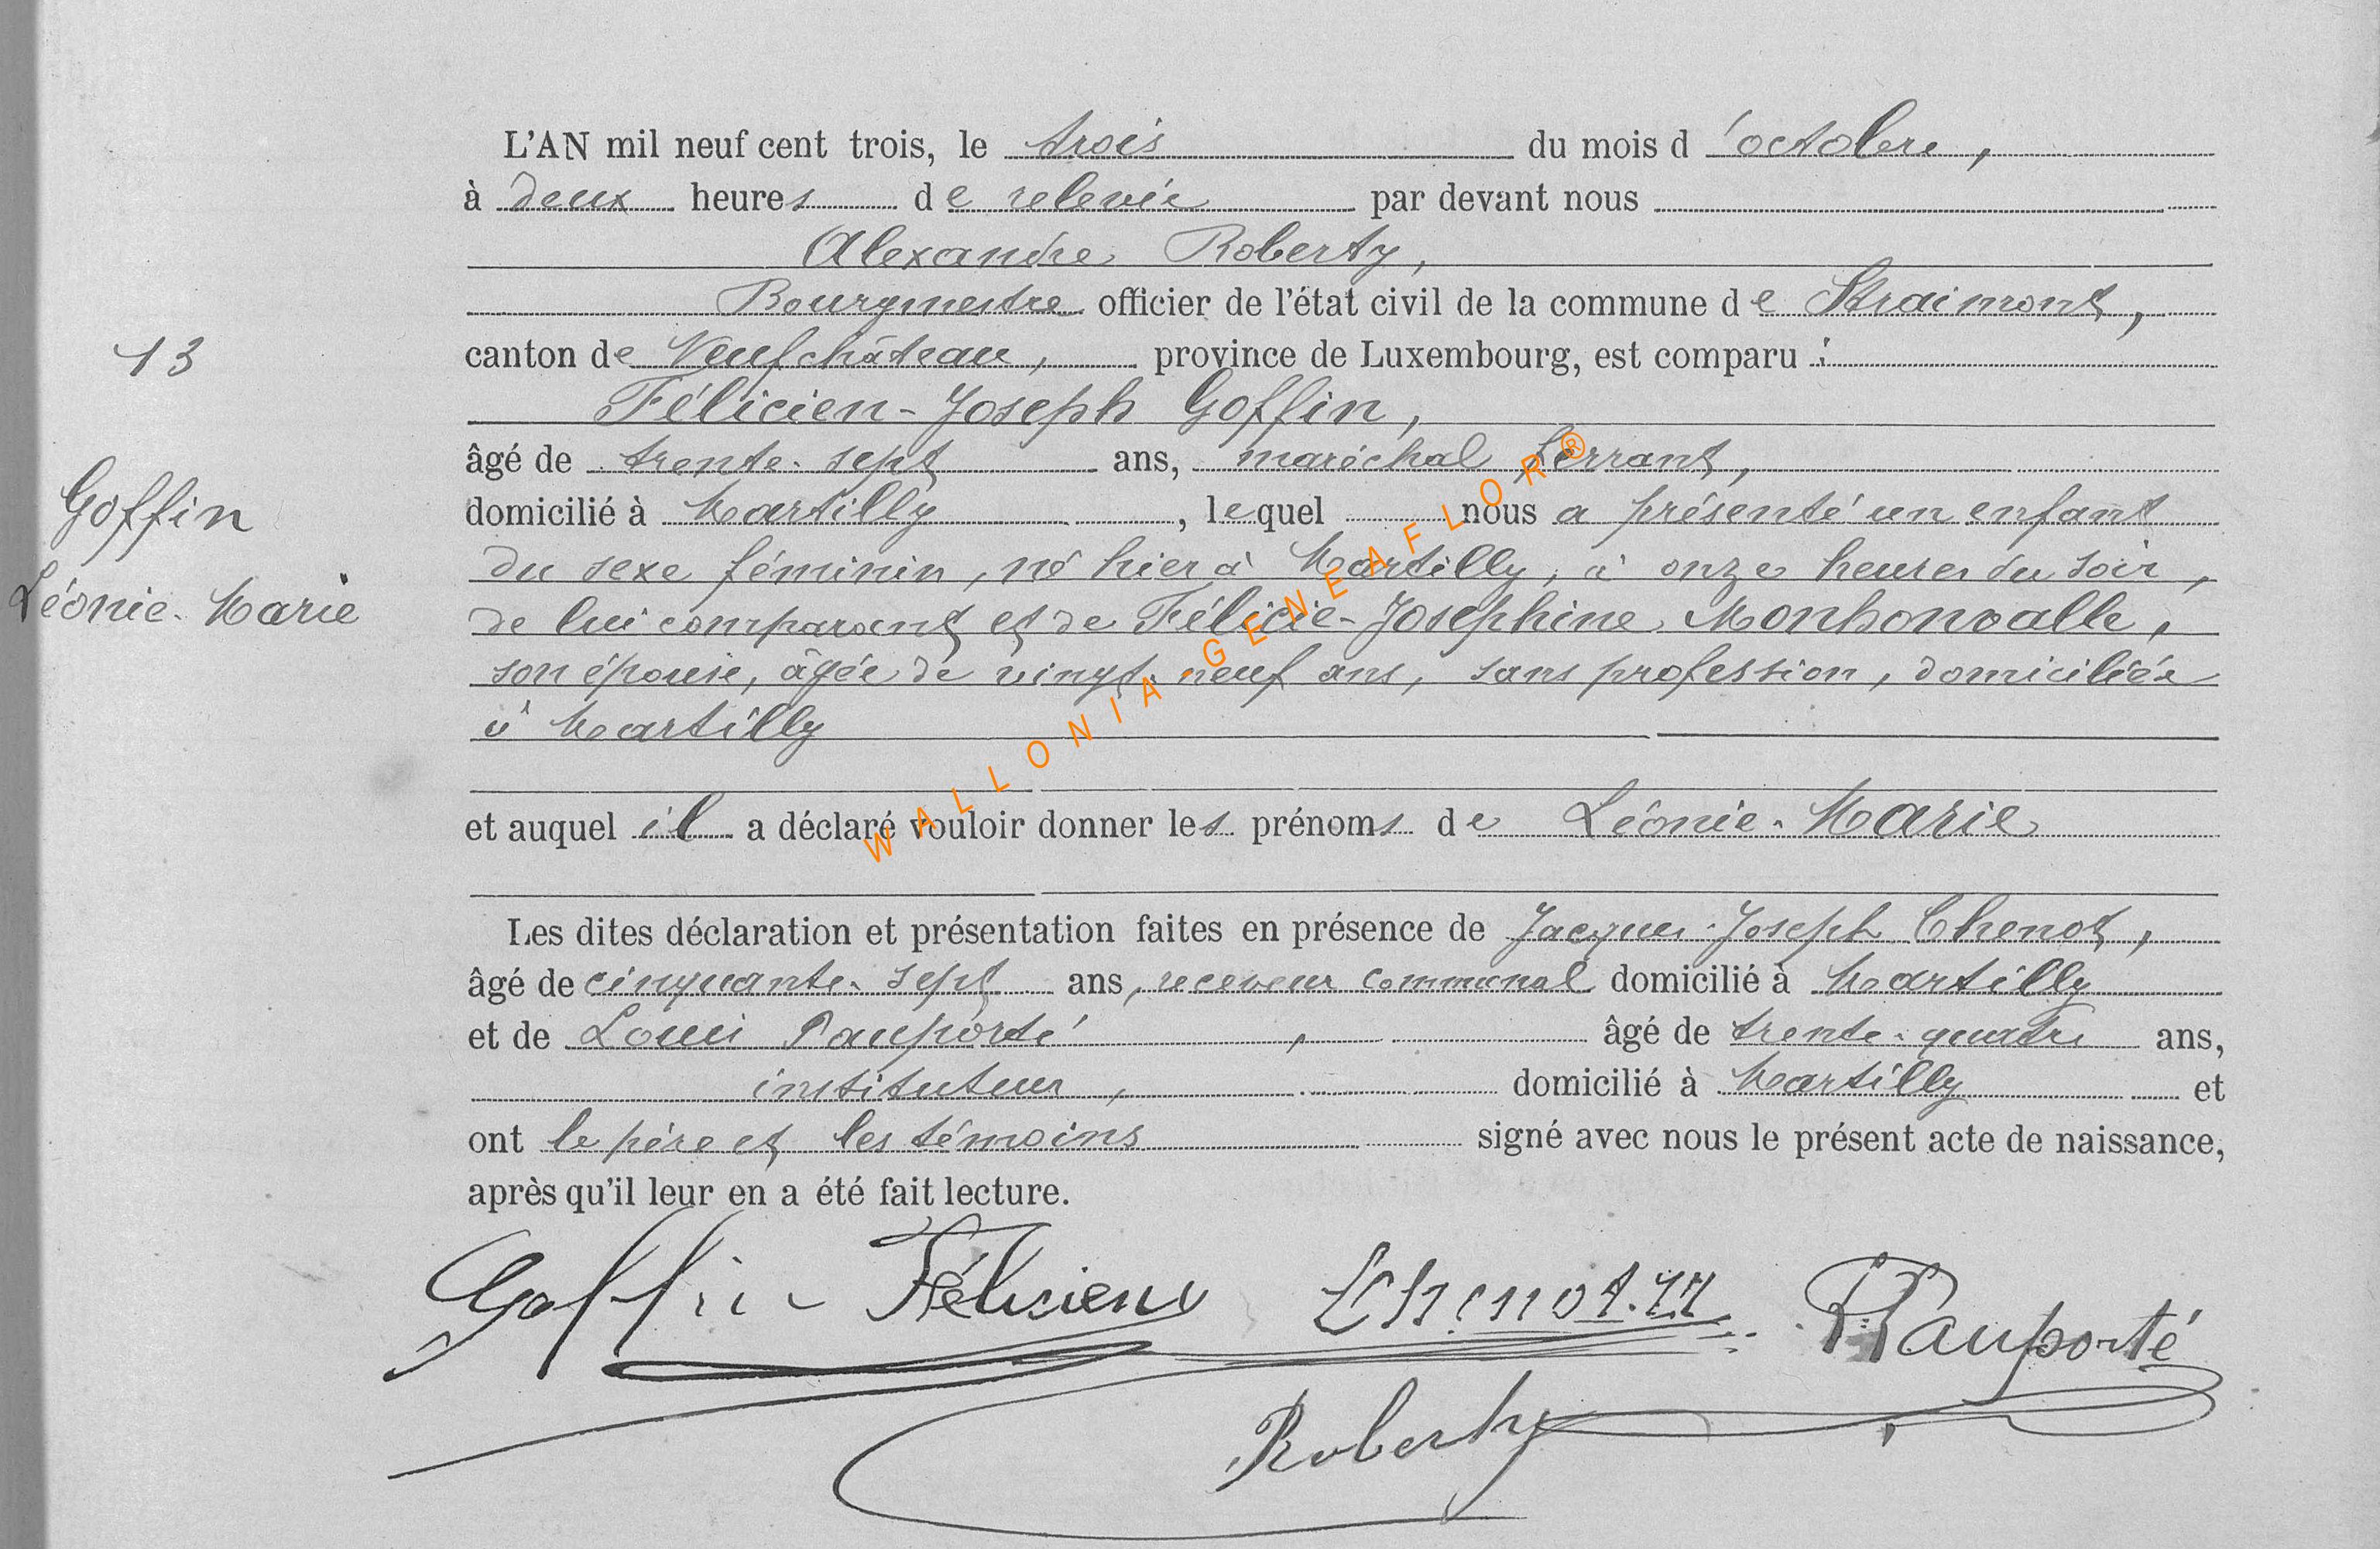 L'AN mil neuf cent trois, le trois du mois d'octobre,
à deux heures de relevée par devant nous
Alexandre Roberty,
Bourgmestre officier de l'état civil de la commune de Straimont,
canton de Neufchâteau, province de Luxembourg, est comparu :
Félicien-Joseph Goffin,
âgé de trente-sept ans, maréchal ferrant,
domicilié à Martilly, lequel nous a présenté un enfant
du sexe féminin, né hier à Martilly, à onze heures du soir,
de lui comparant et de Félicie-Joséphine Monhonvalle,
son épouse, âgée de vingt-neuf ans, sans profession, domiciliée
à Martilly
et auquel il a déclaré vouloir donner les prénoms de Léonie-Marie
Les dites déclaration et présentation faites en présence de Jacques-Joseph Chenot,
âgé de cinquante-sept ans, receveur communal domicilié à Martilly
et de Louis Pauporté, âgé de trente-quatre ans,
instituteur, domicilié à Martilly et
ont le père et les témoins signé avec nous le présent acte de naissance,
après qu'il leur en a été fait lecture.
13
Goffin
Léonie-Marie
Goffin Félicien Chenot. Pauporté
Roberty
WALLONIA GENEAFLOR®